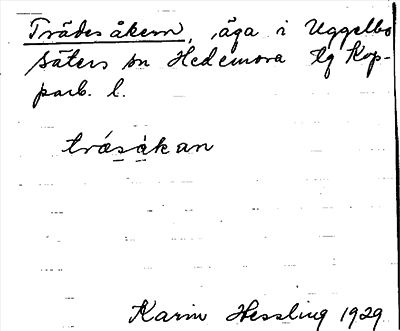 Trädesåkern, äga i Uggelbo
säters sn Hedemora tg Kop-
parb. l.
tråsåkan
Karin Hessling 1929